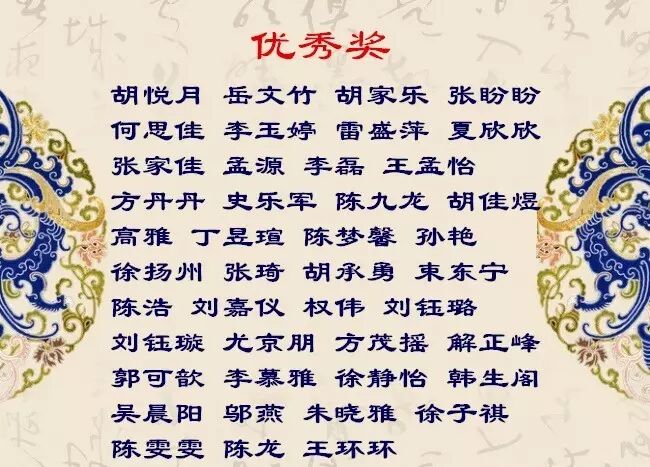 优秀奖
胡悦月 岳文竹 胡家乐 张盼盼
何思佳 李玉婷 雷盛萍 夏欣欣
张家佳 孟源 李磊 王孟怡
方丹丹 史乐军 陈九龙 胡佳煜
高雅 丁昱瑄 陈梦馨 孙艳
徐扬州 张琦 胡承勇 束东宁
陈浩 刘嘉仪 权伟 刘钰璐
刘钰璇 尤京朋 方茂摇 解正峰
郭可歆 李慕雅 徐静怡 韩生阁
吴晨阳 邬燕 朱晓雅 徐子祺
陈雯雯 陈龙 王环环